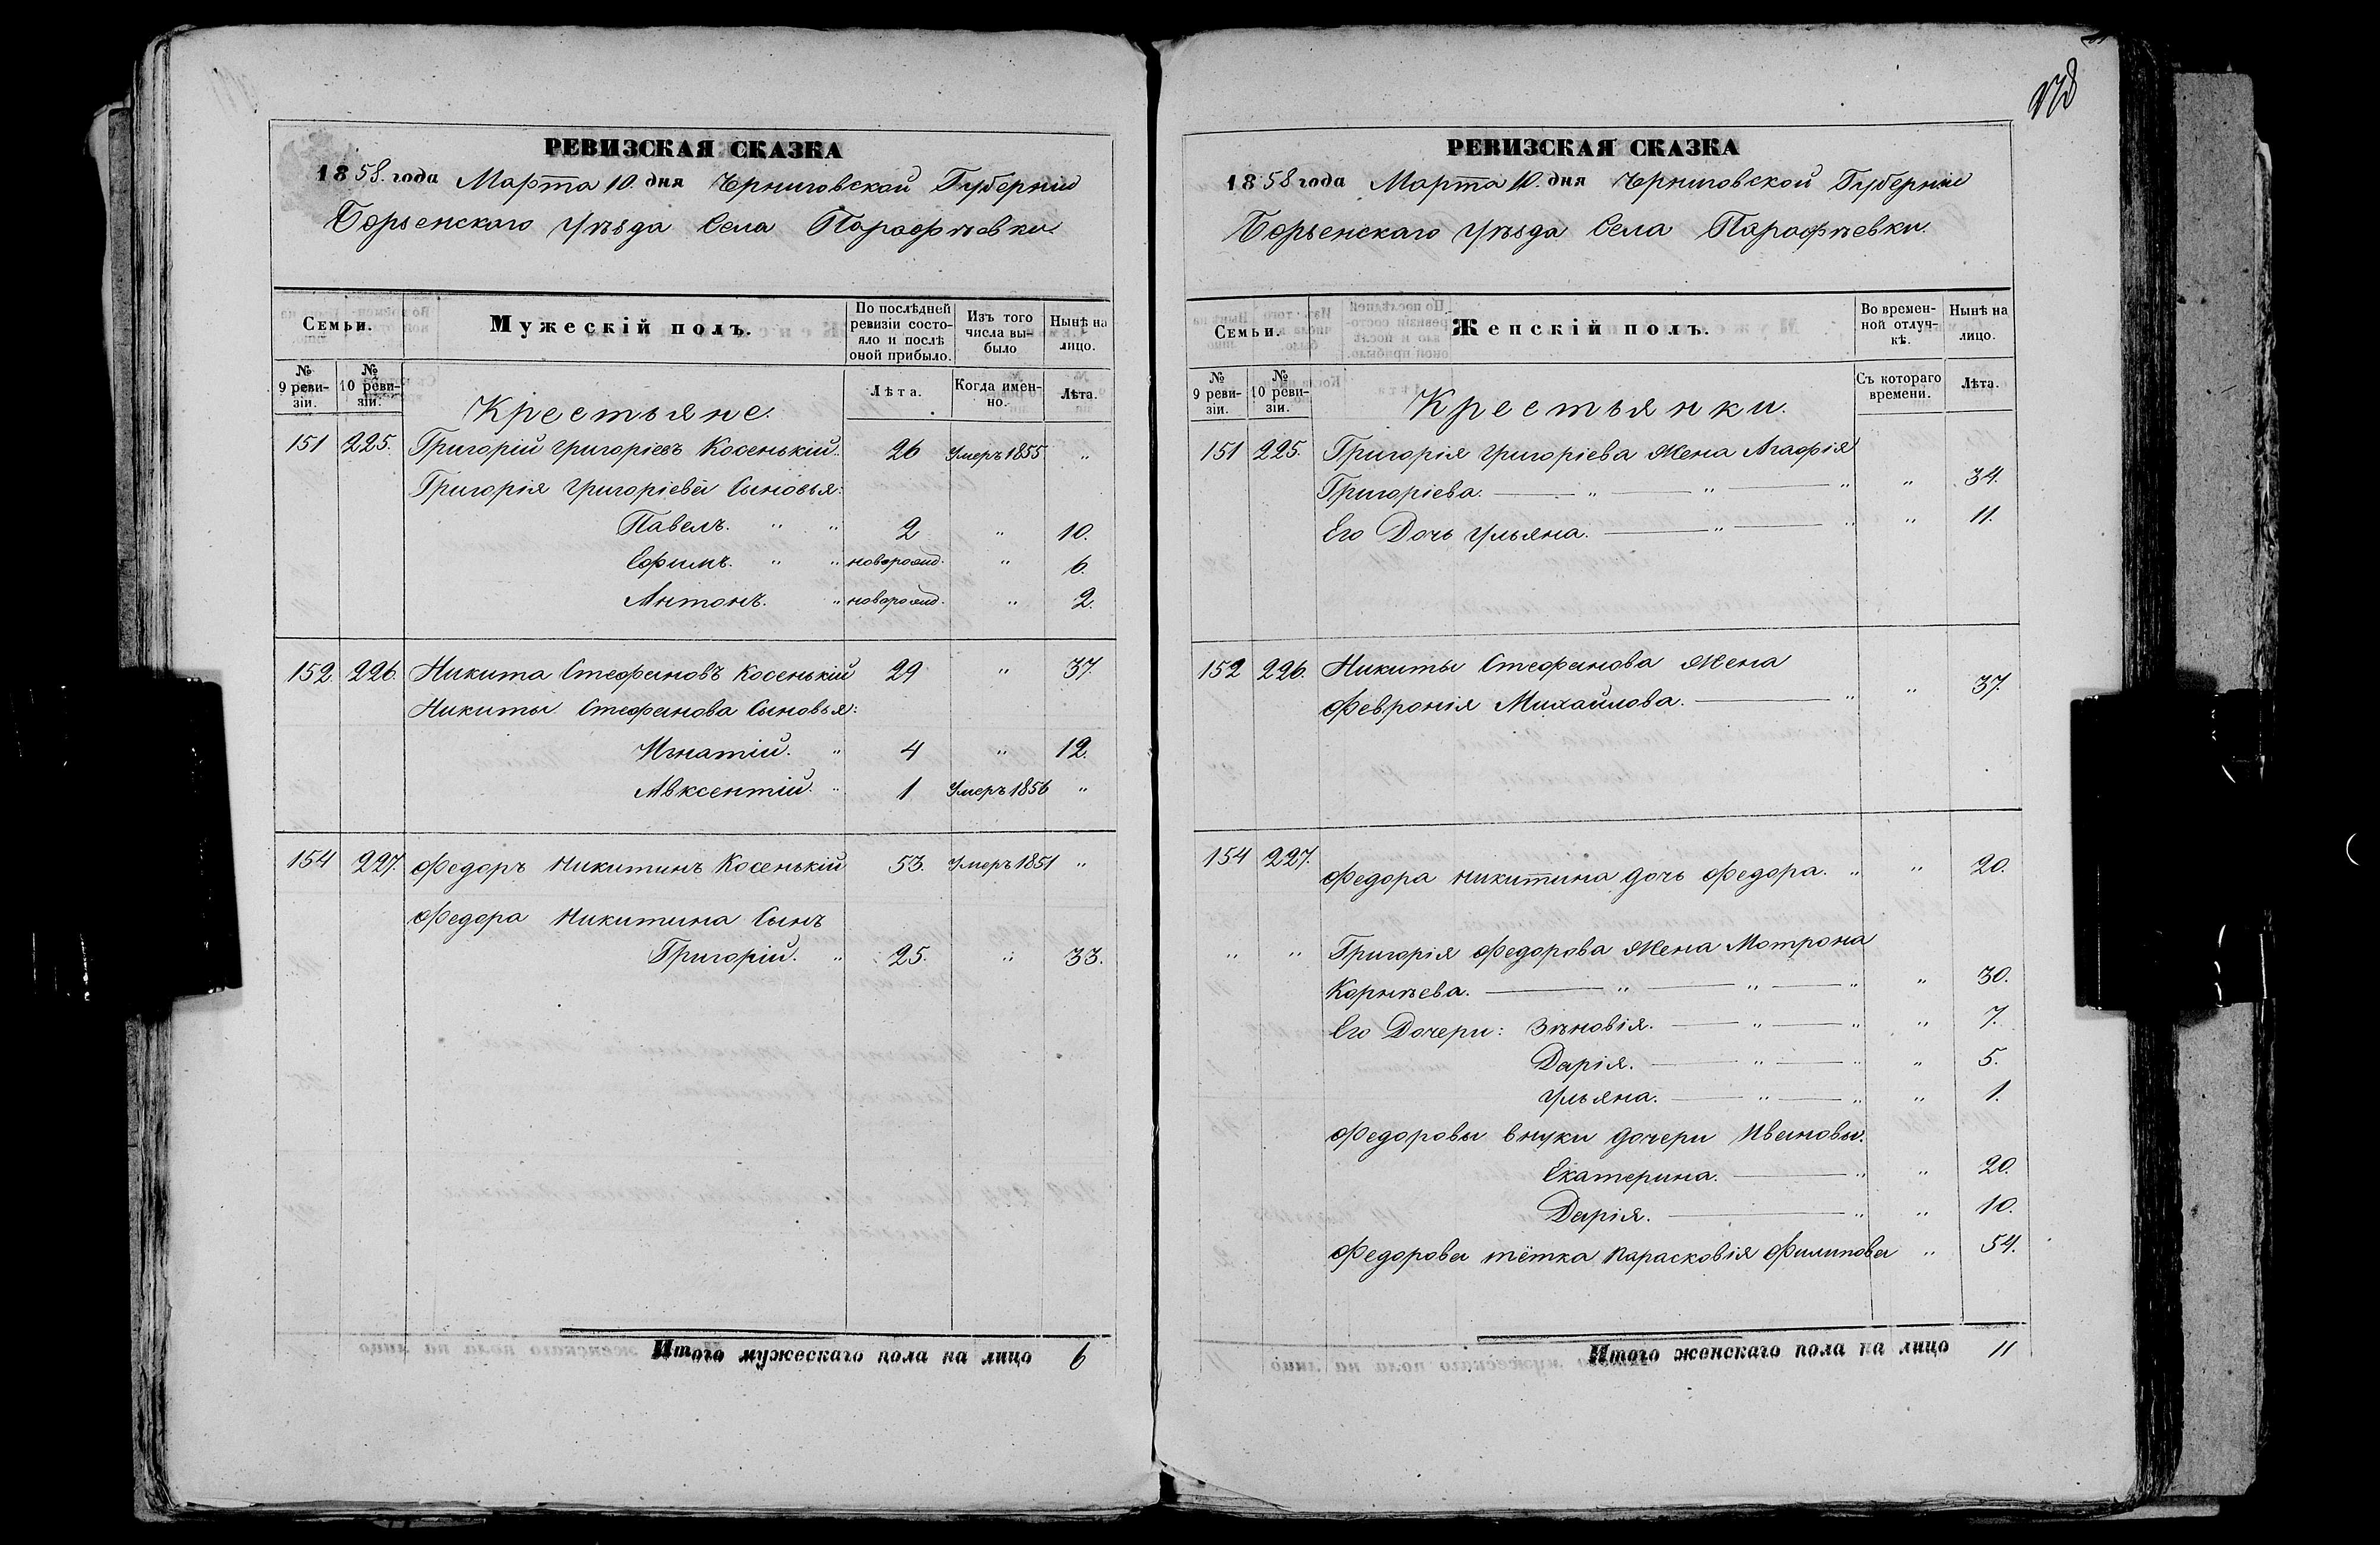 278
РЕВИЗСКАЯ СКАЗКА
1858. года Марта 10. дня Черниговской Губерніи
Борзенскаго Уѣзда Села Парафѣевки
Семьи.
Мужескій полъ.
По послѣдней ревизіи состояло и послѣ оной прибыло.
Изъ того числа выбыло
Нынѣ на лицо.
№ 9 ревизіи.
№ 10 ревизіи.
Лѣта.
Когда именно.
Лѣта.
Крестьяне.
151 225. Григорій Григоріевъ Косенькій. 26 Умеръ 1855 "
Григорія Григоріева Сыновья:
Павелъ. " " 2 " 10.
Ефимъ. " " новорожд. " 6.
Антонъ. " новорожд. " 2.
152 226. Никита Стефановъ Косенькій 29 " 37.
Никиты Стефанова Сыновья:
Игнатій. " 4 " 12.
Авксентій. " 1 Умеръ 1856 "
154 227. Федоръ Никитинъ Косенькій 53. Умеръ 1851 "
Федора Никитина Сынъ
Григорій. " 25. " 33.
Итого мужескаго пола на лицо 6
РЕВИЗСКАЯ СКАЗКА
1858 года Марта 10. дня Черниговской Губерніи
Борзенскаго Уѣзда Села Парафѣевки.
Семьи.
Женскій полъ.
Во временной отлучкѣ.
Нынѣ на лицо.
№ 9 ревизіи.
№ 10 ревизіи.
Съ котораго времени.
Лѣта.
Крестьянки.
151 225. Григорія Григоріева Жена Агафія
Григоріева. — " — " — " " 34.
Его Дочь Ульяна. — " — " " 11.
152 226. Никиты Стефанова Жена
Февронія Михайлова. — " " 37.
154 227. Федора Никитина дочь Федора. " " 20.
" " Григорія Федорова Жена Мотрона
Корнѣева. — " — " — " " 30.
Его Дочери: Зѣновія. — " — " " 7.
Дарія. — " — " " 5.
Ульяна. — " — " " 1.
Федоровы внуки дочери Ивановы.
Екатерина. — " " 20.
Дарія. — " " 10.
Федорова тётка Парасковія Филипова " 54.
Итого женскаго пола на лицо 11